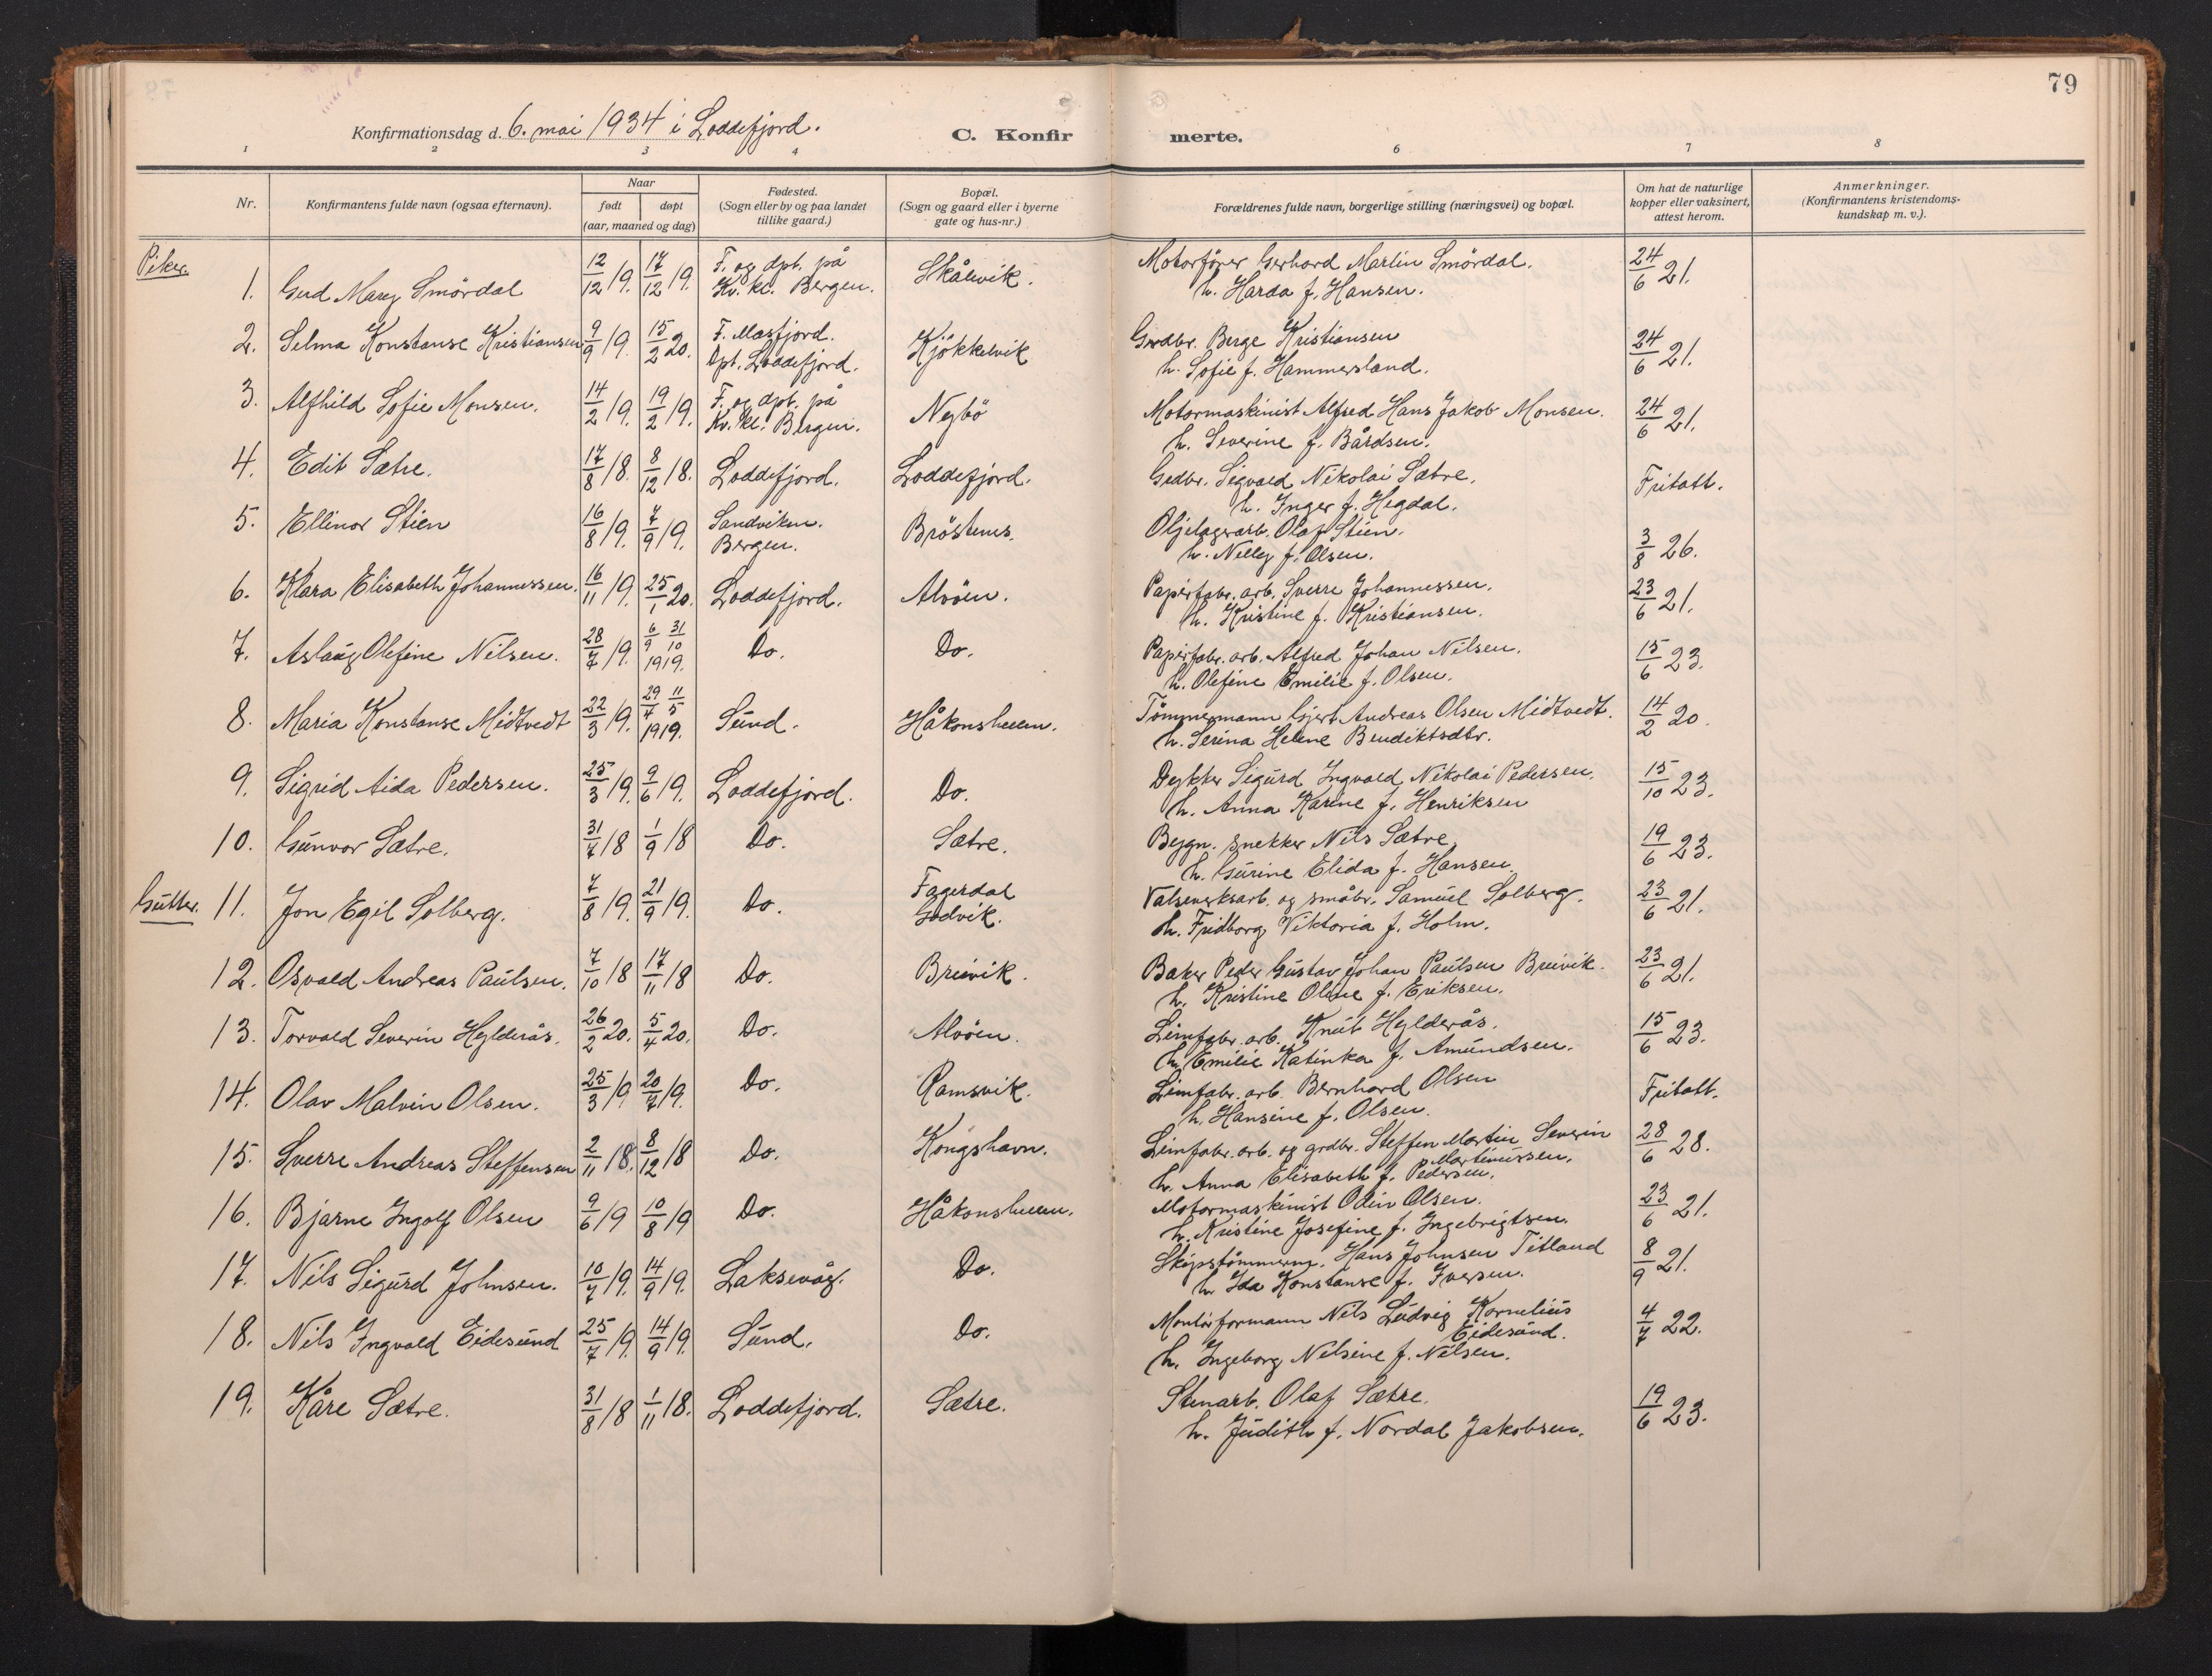 79
Konfirmationsdag d. 6. mai 1934 i Loddefjord.
C. Konfirmerte.
1 2 3 4 6 7 8
Nr.
Konfirmantens fulde navn (ogsaa efternavn).
Naar
født døpt
(aar, maaned og dag)
Fødested.
(Sogn eller by og paa landet
tillike gaard.)
Bopæl.
(Sogn og gaard eller i byerne
gate og hus-nr.)
Forældrenes fulde navn, borgerlige stilling (næringsvei) og bopæl.
Om hat de naturlige
kopper eller vaksinert,
attest herom.
Anmerkninger.
(Konfirmantens kristendoms-
kundskap m. v.).
Piker.
1. Gerd Mary Smördal 12/12 19. 17/12 19. F. og dpt. på Kv. kl. Bergen. Skålevik. Motorfører Gerhard Martin Smördal. 24/6 21.
h. Harda f. Hansen.
2. Selma Konstanse Kristiansen 9/9 19. 15/2 20. F. Masfjord. Dpt. Loddefjord. Kjökkelvik Grdbr. Berge Kristiansen 24/6 21.
h. Sofie f. Hammersland.
3. Alfhild Sofie Monsen. 14/2 19. 19/2 19. F. og dpt. på Kv. kl. Bergen. Nygbö Motormaskinist Alfred Hans Jakob Monsen. 24/6 21.
h. Severine f. Bårdsen.
4. Edit Sætre. 17/8 18. 8/12 18. Loddefjord. Loddefjord. Grdbr. Sigvald Nikolai Sætre. Fritatt.
h. Inger f. Hegdal.
5. Ellinor Stien 16/8 19. 7/9 19. Sandviken. Bergen. Bröstenes. Oljelagerarb. Olaf Stien. 3/8 26.
h. Nelly f. Olsen.
6. Klara Elisabeth Johannessen. 16/11 19. 25/1 20. Loddefjord. Alvöen. Papirfabr. arb. Sverre Johannessen. 23/6 21.
h. Kristine f. Kristiansen.
7. Aslaug Olefine Nilsen. 28/7 19. 6/9 31/10 1919. Do. Do. Papirfabr. arb. Alfred Johan Nilsen. 15/6 23.
h. Olefine Emilie f. Olsen.
8. Maria Konstanse Midtvedt 22/3 19. 29/4 11/5 1919. Sund. Håkonshellen. Tömmermann Gjert Andreas Olsen Midtvedt. 14/2 20.
h. Serina Helene Bendiktsdtr.
9. Sigrid Aida Pedersen. 25/3 19. 9/6 19. Loddefjord. Do. Dykker Sigurd Ingvald Nikolai Pedersen. 15/10 23.
h. Anna Karine f. Henriksen
10. Gunvor Sætre. 31/7 18 1/9 18 Do. Sætre. Bygn. snekker Nils Sætre. 19/6 23.
h. Gurine Elida f. Hansen.
Gutter.
11. Jon Egil Solberg. 7/8 19. 21/9 19. Do. Fagerdal Godvik. Valseverksarb. og småbr. Samuel Solberg. 23/6 21.
h. Fridborg Viktoria f. Holm.
12. Osvald Andreas Paulsen. 7/10 18 17/11 18 Do. Breivik. Baker Peder Gustav Johan Paulsen Breivik. 23/6 21.
h. Kristine Oline f. Eriksen.
13. Torvald Severin Hylderås. 26/2 20. 5/4 20. Do. Alvöen. Limfabr. arb. Knut Hylderås. 15/6 23.
h. Emilie Katinka f. Amundsen.
14. Olav Malvin Olsen. 25/3 19 20/7 19. Do. Ramsvik. Limfabr. arb. Bernhard Olsen Fritatt.
h. Hansine f. Olsen.
15. Sverre Andreas Steffensen 2/11 18. 8/12 18 Do. Kongshavn. Limfabr. arb. og grdbr. Steffen Martin Severin Martinussen. 28/6 28.
h. Anna Elisabeth f. Pedersen.
16. Bjarne Ingolf Olsen 9/6 19 10/8 19 Do. Håkonshellen. Motormaskinist Odin Olsen. 23/6 21.
h. Kristine Josefine f. Ingebrigtsen.
17. Nils Sigurd Johnsen. 10/7 19. 14/9 19. Laksevåg. Do. Skipstömmerm. Hans Johnsen Titland 8/9 21.
h. Ida Konstanse f. Iversen.
18. Nils Ingvald Eidesund 25/7 19. 14/9 19. Sund. Do. Montörformann Nils Ludvig Kornelius Eidesund. 4/7 22.
h. Ingeborg Nilsine f. Nilsen.
19. Kåre Sætre. 31/8 18 1/11 18. Loddefjord. Sætre. Stenarb. Olaf Sætre. 19/6 23.
h. Judith f. Nordal Jakobsen.